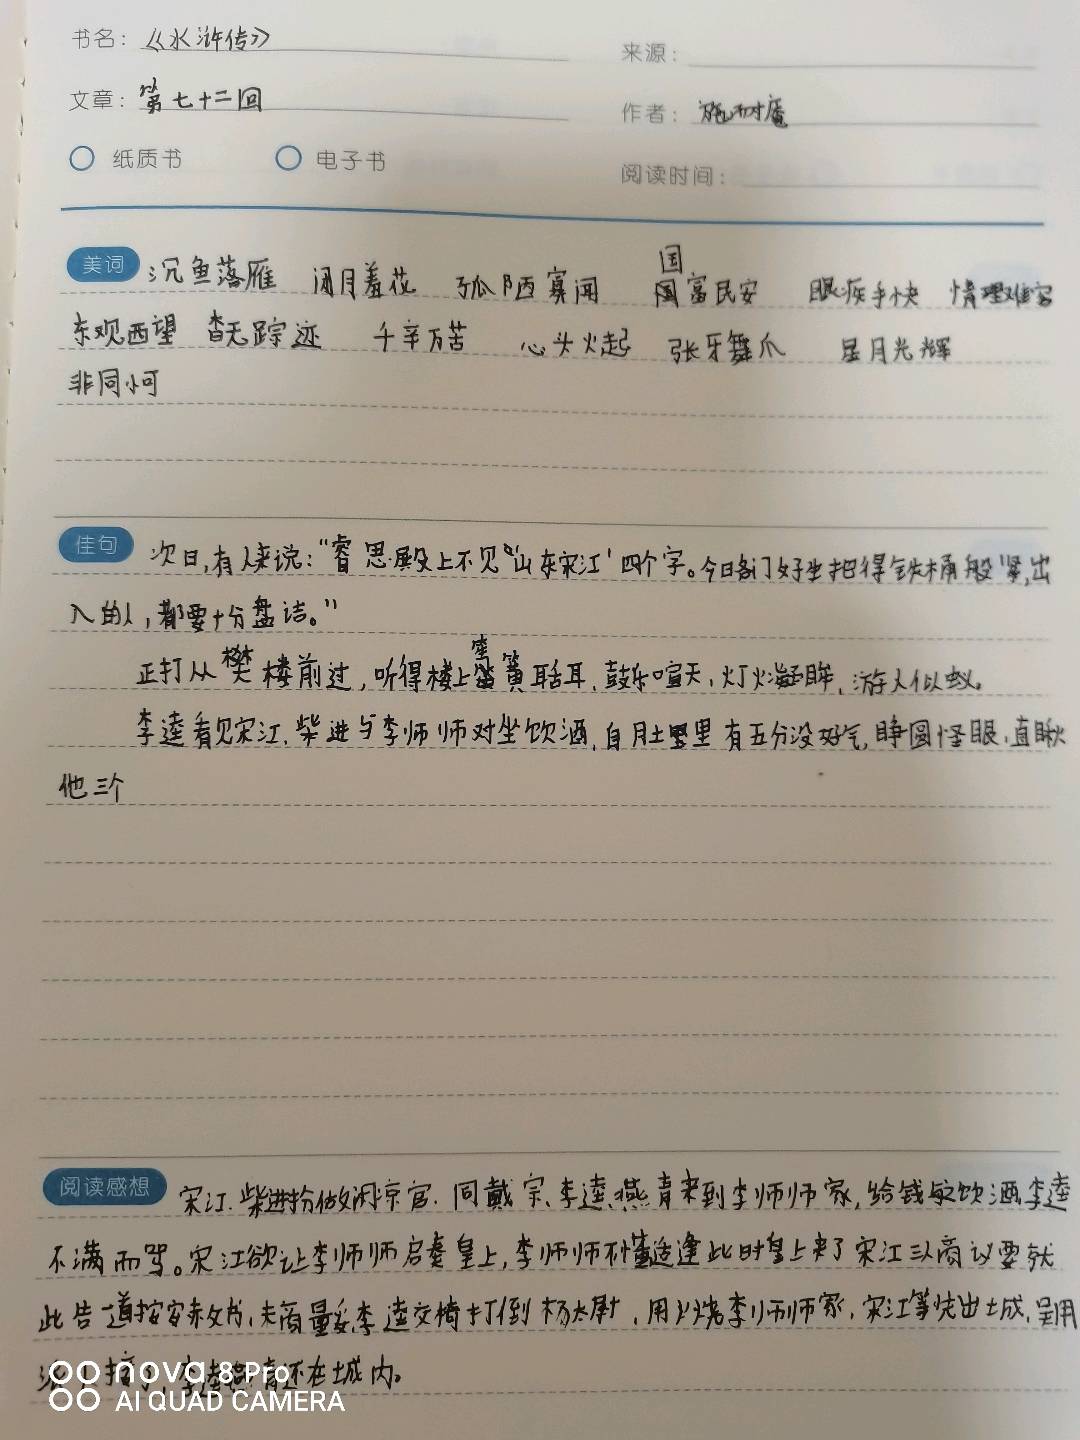 书名：《水浒传》
来源：
文章：第七十二回
作者：施耐庵
纸质书 电子书
阅读时间：
美词 沉鱼落雁 闭月羞花 孤陋寡闻 国富民安 眼疾手快 情理难容
东观西望 杳无踪迹 千辛万苦 心头火起 张牙舞爪 星月光辉
非同小可
佳句 次日，有人来说："睿思殿上不见'山东宋江'四个字。今日各门好生把得铁桶般紧，出
入的人，都要十分盘诘。"
正打从樊楼前过，听得楼上笙簧聒耳、鼓乐喧天，灯火凝眸，游人似蚁。
李逵看见宋江、柴进与李师师对坐饮酒，自肚里有五分没好气，睁圆怪眼，直瞅
他三个
阅读感想 宋江、柴进扮做闲凉官，同戴宗、李逵、燕青来到李师师家，给钱饮酒，李逵
不满而骂。宋江欲让李师师启奏皇上，李师师不懂，适逢此时皇上来了宋江三人商议要就
此告一道招安赦书，未商量妥李逵交椅打倒杨太尉，用火烧李师师家，宋江等先出城，吴用
李逵燕青还在城内。
nova 8 Pro
AI QUAD CAMERA